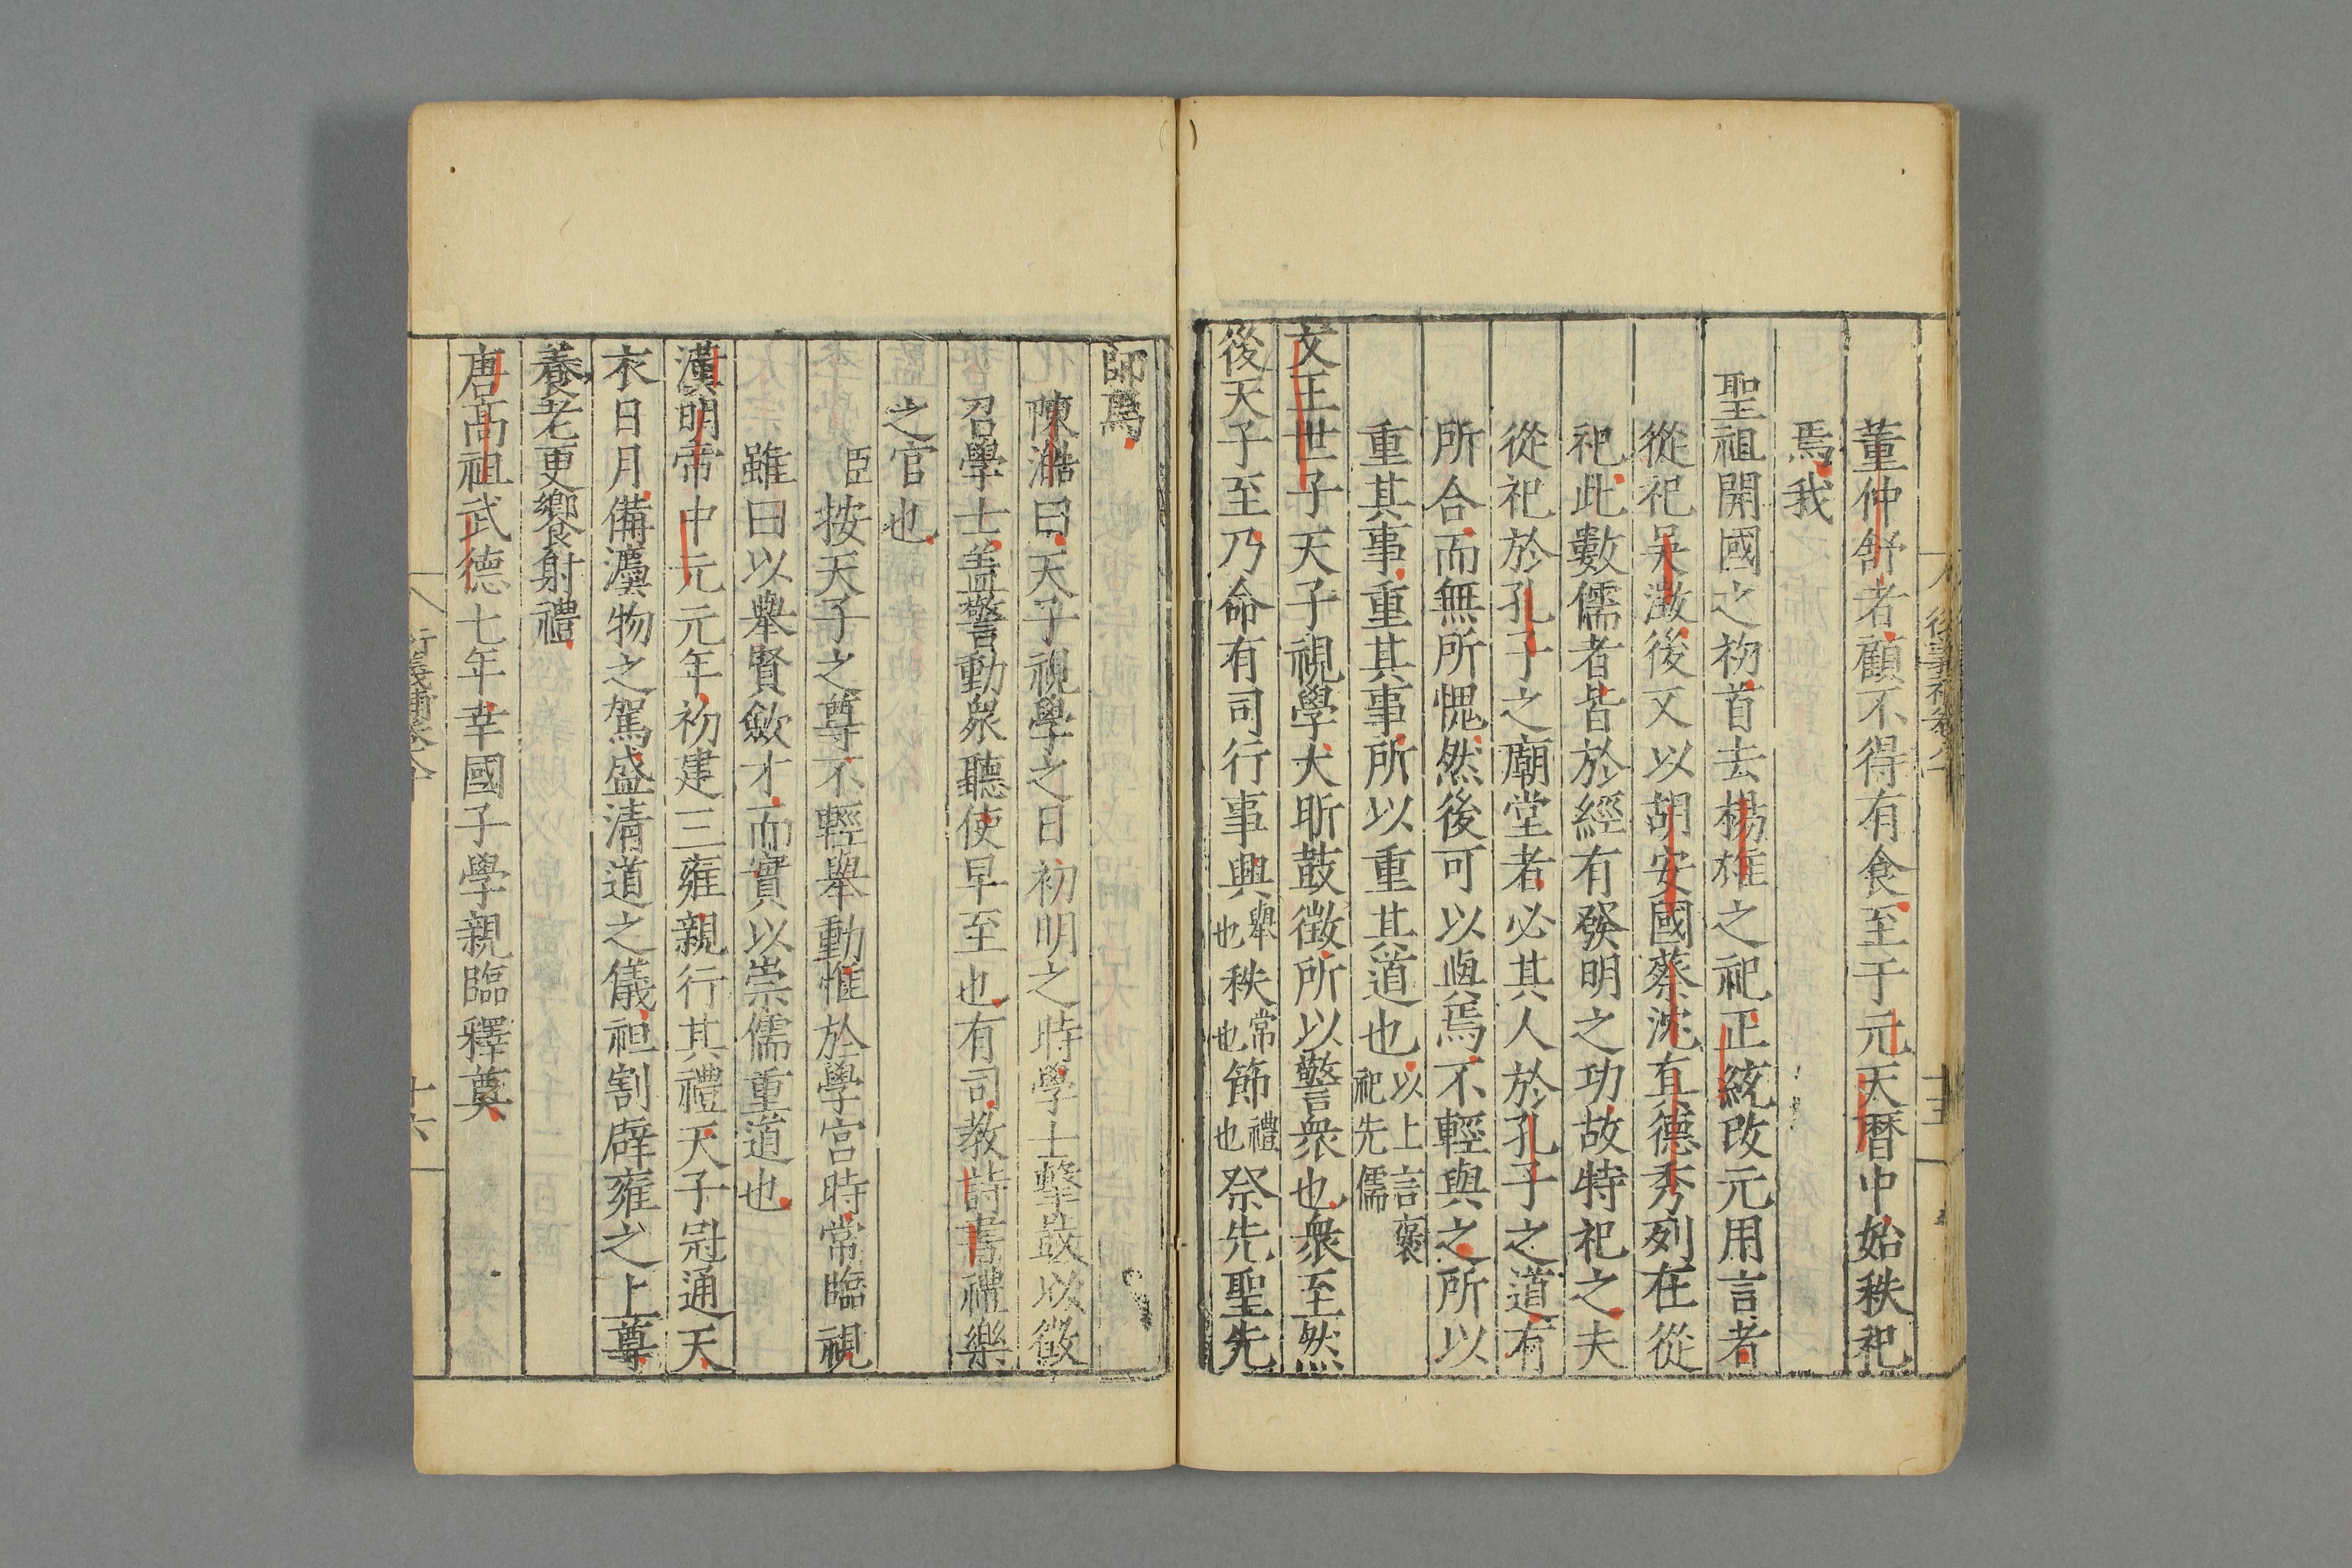 董仲舒者顧不得有食至于元天曆中始秩祀
焉我
聖祖開國之初首去楊雄之祀正統改元用言者
從祀吳澂後又以胡安國蔡沈真德秀列在從
祀此數儒者皆於經有發明之功故特祀之夫
從祀於孔子之廟堂者必其人於孔子之道有
所合而無所愧然後可以與焉不輕與之所以
重其事重其事所以重其道也以上言褒祀先儒
文王世子天子視學大昕鼓徵所以警衆也衆至然
後天子至乃命有司行事興舉也秩常也節禮也祭先聖先
師焉
陳澔曰天子視學之日初明之時學士擊鼓以徵
召學士盖警動衆聽使早至也有司教詩書禮樂
之官也
臣按天子之尊不輕舉動惟於學宮時常臨視
雖曰以舉賢歛才而實以崇儒重道也
漢明帝中元元年初建三雍親行其禮天子冠通天
衣日月備灋物之駕盛清道之儀袒割辟雍之上尊
養老更饗射禮
唐高祖武德七年幸國子學親臨釋奠
十六